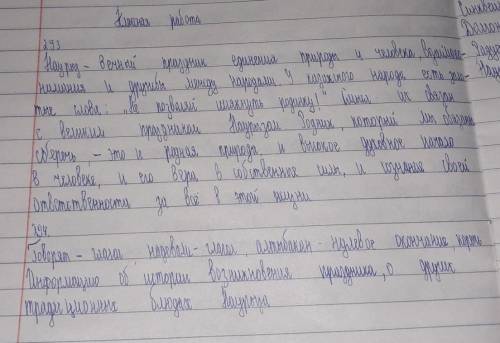 Классная работа
293
Наурыз - Вечный праздник единения природы и человека, взаимопо-
нимания и дружбы между народами. У казахского народа есть золо-
тые слова: „Не позволяй иссякнуть роднику!" Смысл их связан
с великим праздником Наурызом. Родник, который мы обязаны
сберечь - это и родная природа и высокое духовное начало
в человеке, и его вера в собственные силы, и сознание своей
ответственности за всё в этой жизни
294
Говорят - глагол называли - глагол, алтыбакан - нулевое окончание
Информацию об истории возникновения праздника, о других
традиционных блюдах Наурыза
Синквейн